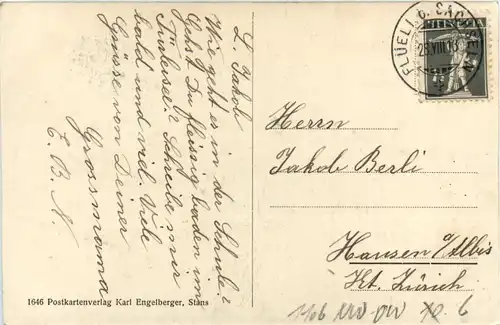 L. Jakob
Wie geht es in der Schule?
Hast Du fleissig baden im
Türlersee? Schreibe mir
bald und viel. Viele
Grüsse von Deiner
Grossmama
C. B. N.
1646 Postkartenverlag Karl Engelberger, Stans
FLÜELI b. SACHSELN
HELVETIA
Herrn
Jakob Berli
Hausen a/Albis
Kt. Zürich